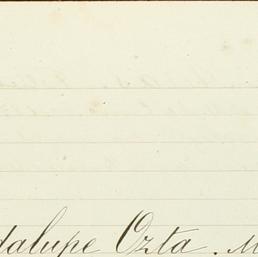 dalupe Ozta. M